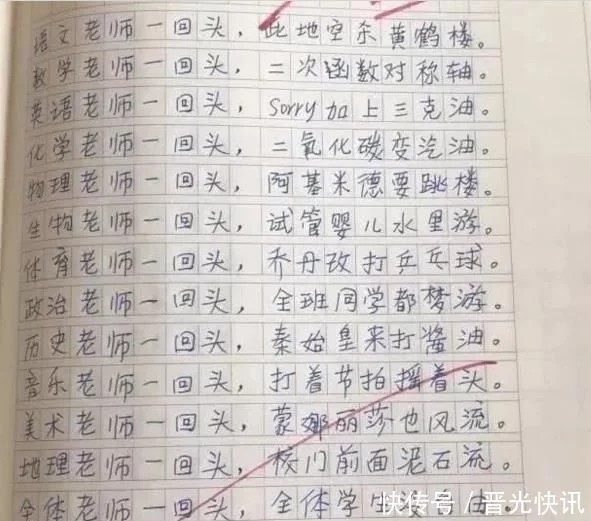 语文老师一回头，此地空余黄鹤楼。
数学老师一回头，二次函数对称轴。
英语老师一回头，Sorry加上三克油。
化学老师一回头，二氧化碳变汽油。
物理老师一回头，阿基米德要跳楼。
生物老师一回头，试管婴儿水里游。
体育老师一回头，乔丹改打乒乓球。
政治老师一回头，全班同学都梦游。
历史老师一回头，秦始皇来打酱油。
音乐老师一回头，打着节拍摇着头。
美术老师一回头，蒙娜丽莎也风流。
地理老师一回头，校门前面泥石流。
全体老师一回头，全体学生 自由。
快传号／晋光快讯